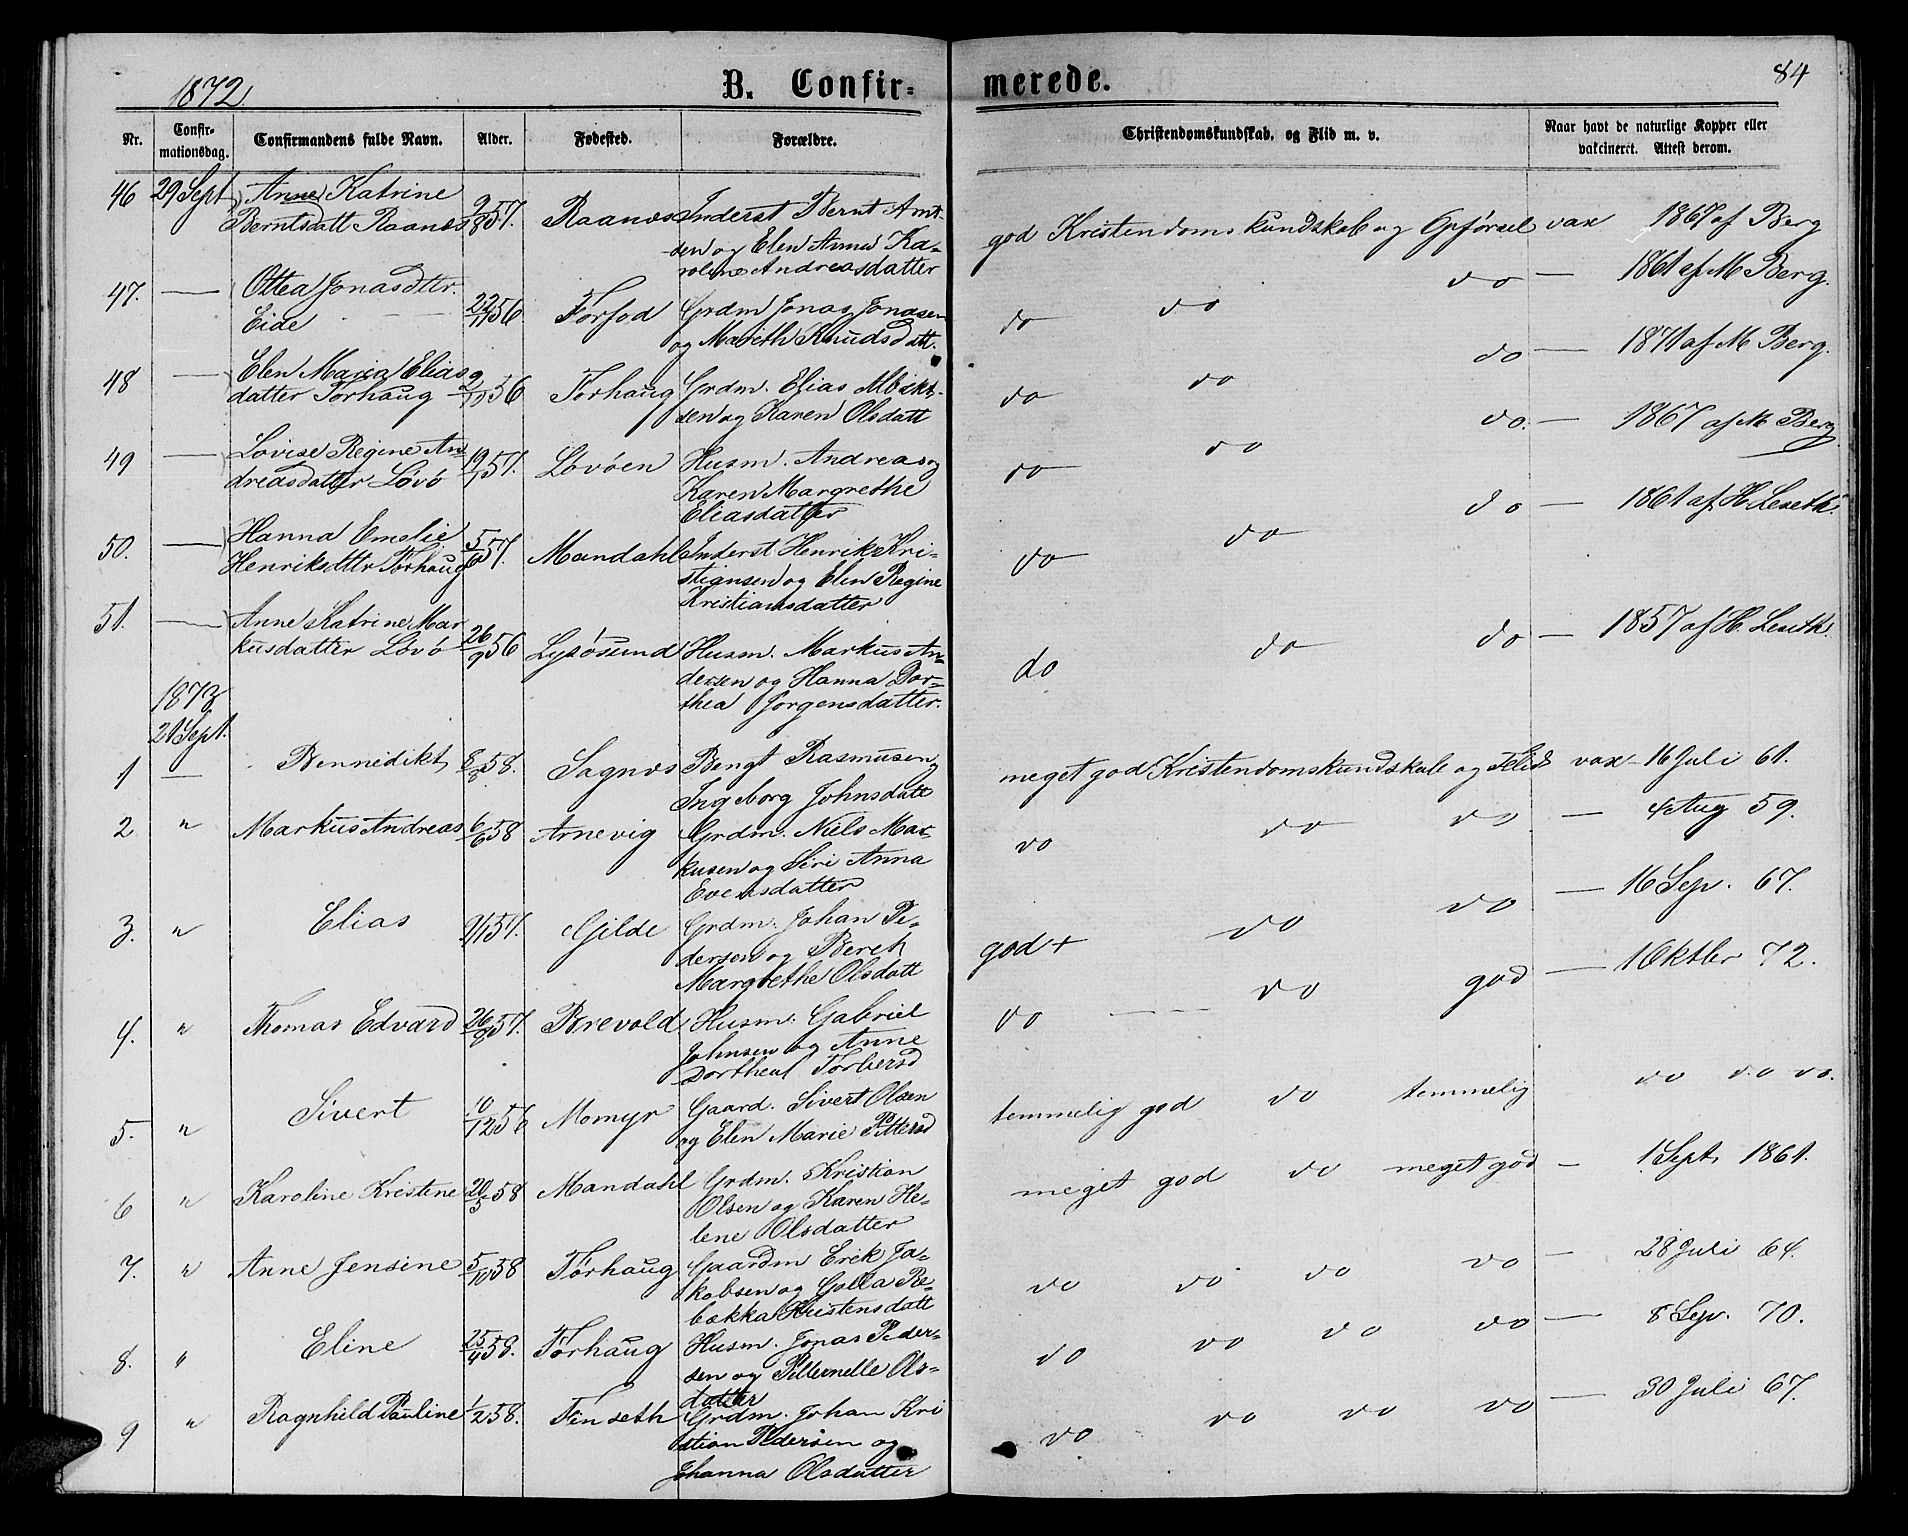 1872
B. Confir-
merede.
84
Nr.
Confir-
mationsdag.
Confirmandens fulde Navn.
Alder.
Fødested.
Forældre.
Christendomskundskab, og Flid m. v.
Naar havt de naturlige Kopper eller
vakcineret. Attest derom.
46 29 Sept Anne Katrine
Berntsdatt Raanes 9/8 57. Raanes Inderst Bernt Amt-
sen og Elen Anna Ka-
roline Andreasdatter
god Kristendomskundskab og Opførsel vax 1867 af Berg
47. — Ottea Jonasdttr.
Eide 22/11 56. Forfod Grdm Jonas Jonasen
og Mareth Knudsdatt.
do do do — 1861 af M Berg.
48 — Elen Maria Elias
datter Torhaug 2/10 56 Torhaug Grdm. Elias
sen og Karen Olsdatt
do do do — 1871 af M Berg.
49 — Lovise Regine An
dreasdatter Løvø 19/1 57. Løvøen Husm. Andreas og
Karen Margrethe
Eliasdatter
do do do. — 1867 af M Berg
50. — Hanna Emelie
Henriksdttr Torhaug 5/6 57. Mandahl Inderst Henrik Kri-
stiansen og Elen Regine
Kristiansdatter
do do do — 1861 af H. Leseth.
51. — Anne Katrine Mar
kusdatter Løvø 26/9 56 Lysøsund Husm. Markus An-
dersen og Hanna Dor-
thea Jorgensdatter.
do do do — 1857 af H. Leseth.
1873
21 Sept.
1 — Bennedikt 8/8 58. Sagnes Bengt Rasmusen og
Ingeborg Johnsdatt
meget god Kristendomskundskab og Flid vax — 16 Juli 61.
2 " Markus Andreas 6/6 58 Arnevig Grdm. Niels Mar-
kusen og Siri Anna
Evensdatter
do do do — 4 Aug 59.
3. " Elias 9/1 57. Gjilde Grdm. Johan Pe-
dersen og Bereh
Margrethe Olsdatt
god + do do — 16 Sep. 67.
4. " Thomas Edvard 26/9 57. Brevold Husm. Gabriel
Johnsen og Anne
Dorthea Torbersd
do do god — 1 Oktbr 72.
5. " Sivert 10/12 56 Momyr Gaard. Sivert Olsen
og Elen Marie Pettersd
temmelig god do temmelig do do do.
6 " Karoline Kristine 20/5 58 Mandahl Grdm. Kristian
Olsen og Karen He-
lene Olsdatter
meget god do meget god — 1 Sept. 1861.
7. " Anne Jensine 5/10 58 Torhaug Gaardm Erik Ja-
kobsen og Golla Re-
bækka Kristensdatt
do do do do — 28 Juli 64.
8. " Eline 25/4 58. Torhaug Husm. Jonas Peder-
sen og Petternelle Ols-
datter
do do do do — 8 Sep. 70.
9 " Ragnhild Pauline 1/2 58. Finseth Grdm. Johan Kri
stian Pedersen og
Johanna Olsdatter
do do do do — 30 Juli 67.